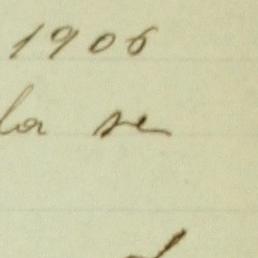 1906
la se